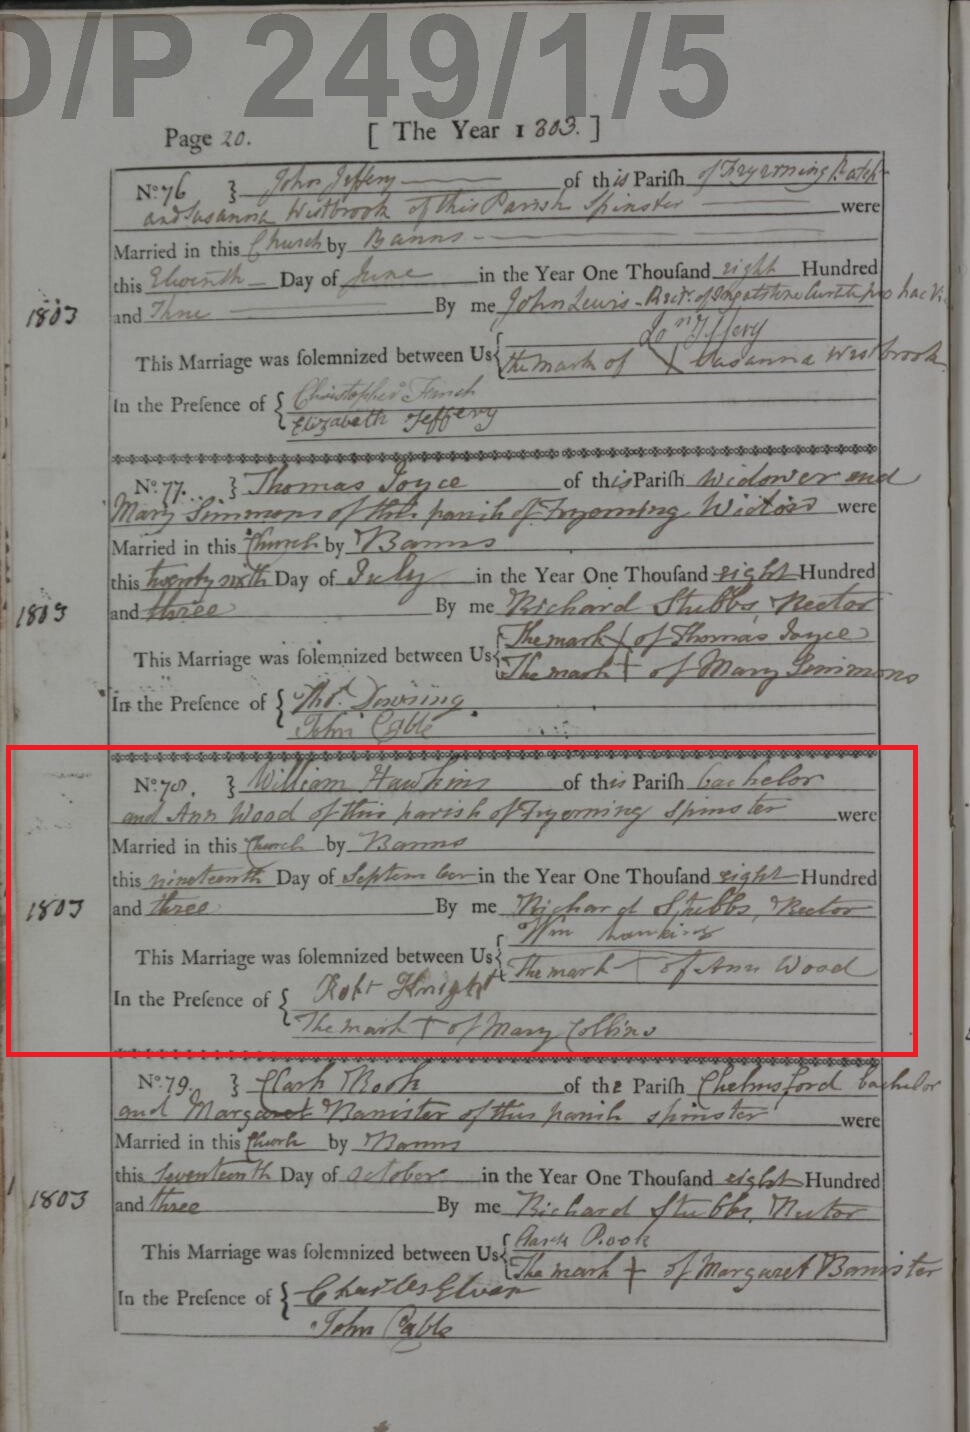 D/P 249/1/5
Page 20. [ The Year 1803. ]
No. 76 } John Jeffery of this Pariſh of Fryerning Batch
and Susanna Westbrook of this Parish Spinster were
Married in this Church by Banns
this Eleventh Day of June in the Year One Thouſand eight Hundred
1803
and Three By me John Lewis - Rectr. of Ingatstone Curate pro hac Vi
This Marriage was ſolemnized between Us { Jn Jeffery
the mark of X Susanna Westbrook
In the Preſence of { Christopher French
Elizabeth Jeffery
No. 77. } Thomas Joyce of this Pariſh widower and
Mary Simmons of this parish of Fryerning Widow were
Married in this Church by Banns
this twenty sixth Day of July in the Year One Thouſand eight Hundred
1803
and three By me Richard Stubbs, Rector
This Marriage was ſolemnized between Us { The mark + of Thomas Joyce
The mark + of Mary Simmons
In the Preſence of { Thos. Downing
John Cable
No. 78. } William Hawkins of this Pariſh bachelor
and Ann Wood of this parish of Fryerning Spinster were
Married in this Church by Banns
this nineteenth Day of September in the Year One Thouſand eight Hundred
1803
and three By me Richard Stubbs, Rector
This Marriage was ſolemnized between Us { Wm hawkins
The mark + of Ann Wood
In the Preſence of { Robt Knight
The mark + of Mary Collins
No. 79. } Clark Rook of the Pariſh Chelmsford bachelor
and Margaret Banister of this parish spinster were
Married in this Church by Banns
this Seventeenth Day of October in the Year One Thouſand eight Hundred
1803
and three By me Richard Stubbs, Rector
This Marriage was ſolemnized between Us { Clark Rook
The mark + of Margaret Banister
In the Preſence of { Charles
John Cable